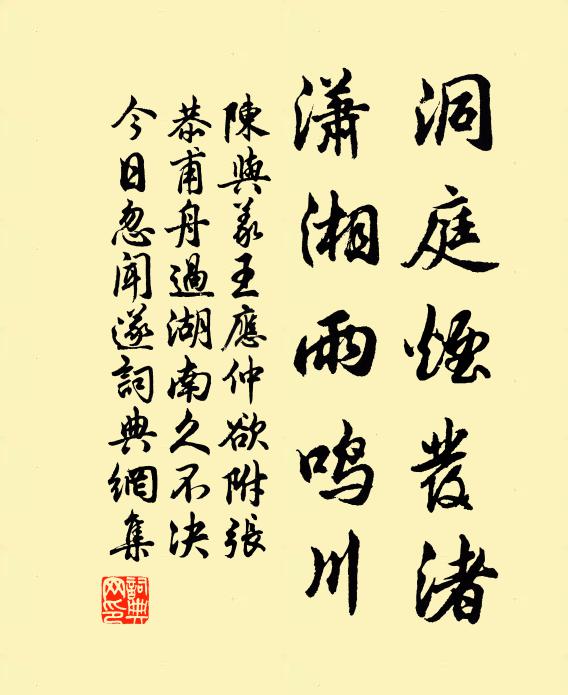 洞庭煙發渚
瀟湘雨鳴川
陳與義王應仲欲附張
恭甫舟過湖南久不決
今日忽聞遂詞典網集
詞典网印